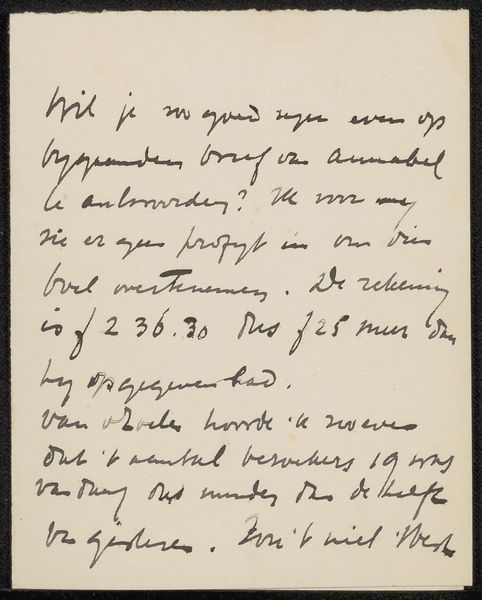 Wil je zoo goed zijn even op
bijgaanden brief van Annabel
te antwoorden? Ik voor mij
zie er geen profijt in om dien
boel overtenemen. De rekening
is f 236.30 dus f 25 meer dan
hij opgegeven had.
van hoorde ik zooeven
dat 't aantal bezoekers 19 was
vandaag dus minder dan de helft
van gisteren. Zou 't niet